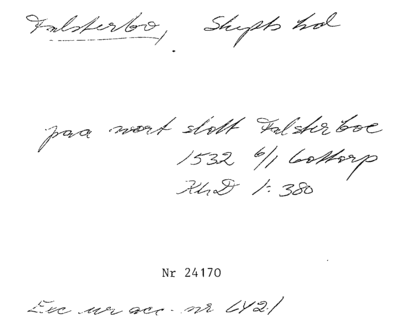 Falsterbo, Skytts hd
paa wort slott Falsterboe
1532 6/1 Gottorp
KhD 1: 380
Nr 24170
Exc ur acc. nr 642/